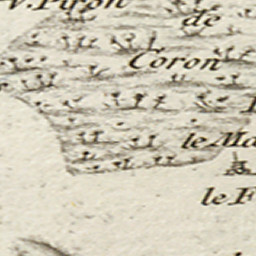 V. Piron
de
Coron
le Ma
le F